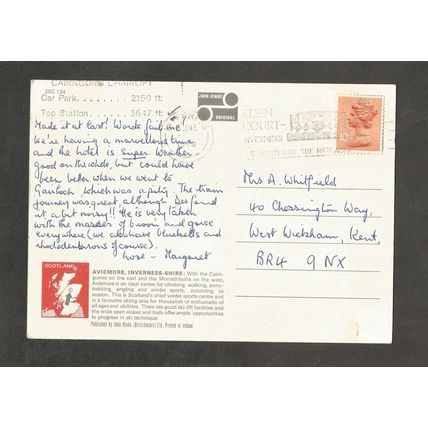 CAIRNGORM CHAIRLIFT
2SC 134
Car Park. . . . . . . . 2150 ft
Top Station . . . . . . . 3647 ft
JOHN HINDE
ORIGINAL
EDEN
COURT
INVERNESS
Made it at last! Words fail me!
We're having a marvellous time,
and the hotel is super. Weather
good on the whole, but could have
been better when we went to
Gairloch, which was a pity. The train
journey was great, although Des found
it a bit noisy!! He is very taken
with the masses of broom and gorse
everywhere (we also have bluebells and
rhododendrons of course).
Love - Margaret
Mrs A. Whitfield
40 Chessington Way,
West Wickham, Kent,
BR4 9NX
SCOTLAND
AVIEMORE, INVERNESS-SHIRE: With the Cairn-
goims on the east and the Monadhliaths on the west,
Aviemore is an ideal centre for climbing, walking, pony-
trekking, angling and winter sports, according to
season. This is Scotland's chief winter sports centre and
is a favourite skiing area for thousands of enthusiasts of
all ages and abilities. There are good ski-lift facilities and
the wide open slopes and trails offer ample opportunities
to progress in ski technique.
Published by John Hinde (Distributors) Ltd. Printed in Ireland